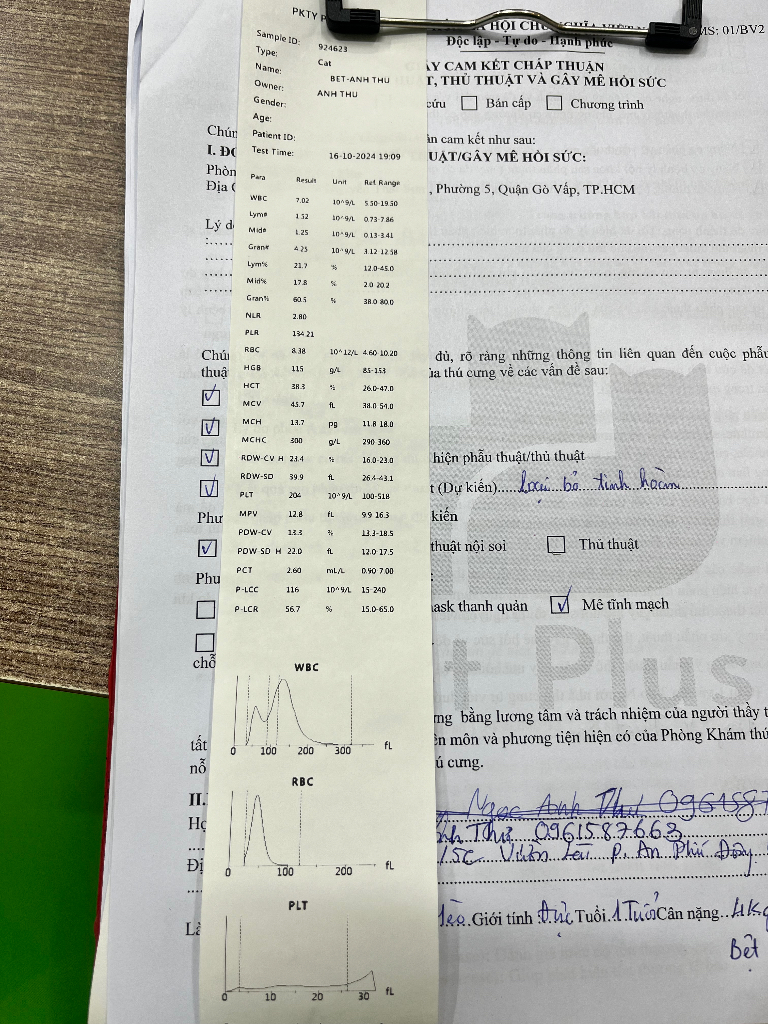 PKTY P
Sample ID: 924623
Type: Cat
Name: BET-ANH THU
Owner: ANH THU
Gender:
Age:
Patient ID:
Test Time: 16-10-2024 19:09
Para Result Unit Ref. Range
WBC 7.02 10^9/L 5.50-19.50
Lym# 1.52 10^9/L 0.73-7.86
Mid# 1.25 10^9/L 0.13-3.41
Gran# 4.25 10^9/L 3.12-12.58
Lym% 21.7 % 12.0-45.0
Mid% 17.8 % 2.0-20.2
Gran% 60.5 % 38.0-80.0
NLR 2.80
PLR 134.21
RBC 8.38 10^12/L 4.60-10.20
HGB 115 g/L 85-153
HCT 38.3 % 26.0-47.0
MCV 45.7 fL 38.0-54.0
MCH 13.7 pg 11.8-18.0
MCHC 300 g/L 290-360
RDW-CV H 23.4 % 16.0-23.0
RDW-SD 39.9 fL 26.4-43.1
PLT 204 10^9/L 100-518
MPV 12.8 fL 9.9-16.3
PDW-CV 13.3 % 13.3-18.5
PDW-SD H 22.0 fL 12.0-17.5
PCT 2.60 mL/L 0.90-7.00
P-LCC 116 10^9/L 15-240
P-LCR 56.7 % 15.0-65.0
WBC
0 100 200 300 fL
RBC
0 100 200 fL
PLT
0 10 20 30 fL
MS: 01/BV2
Độc lập - Tự do - Hạnh phúc
ẤY CAM KẾT CHẤP THUẬN
T, THỦ THUẬT VÀ GÂY MÊ HỒI SỨC
cứu Bán cấp Chương trình
Chún ản cam kết như sau:
I. ĐƠ UẬT/GÂY MÊ HỒI SỨC:
Phòn
Địa C , Phường 5, Quận Gò Vấp, TP.HCM
Lý d
:
Chún đủ, rõ ràng những thông tin liên quan đến cuộc phẫu
thuậ ủa thú cưng về các vấn đề sau:
hiện phẫu thuật/thủ thuật
t (Dự kiến) Loại bỏ tinh hoàn
Phư kiến
thuật nội soi Thủ thuật
Phu :
ask thanh quản Mê tĩnh mạch
chỗ
t Plus
ng bằng lương tâm và trách nhiệm của người thầy t
tất ên môn và phương tiện hiện có của Phòng Khám thú
nỗ ú cưng.
II. Ngọc Anh Thư 096158
Họ nh Thư 0961587663
Đị 15C Vườn Lài P. An Phú Đông
Là Mèo Giới tính: Đực Tuổi 1 Tuổi Cân nặng 4Kg
Bét